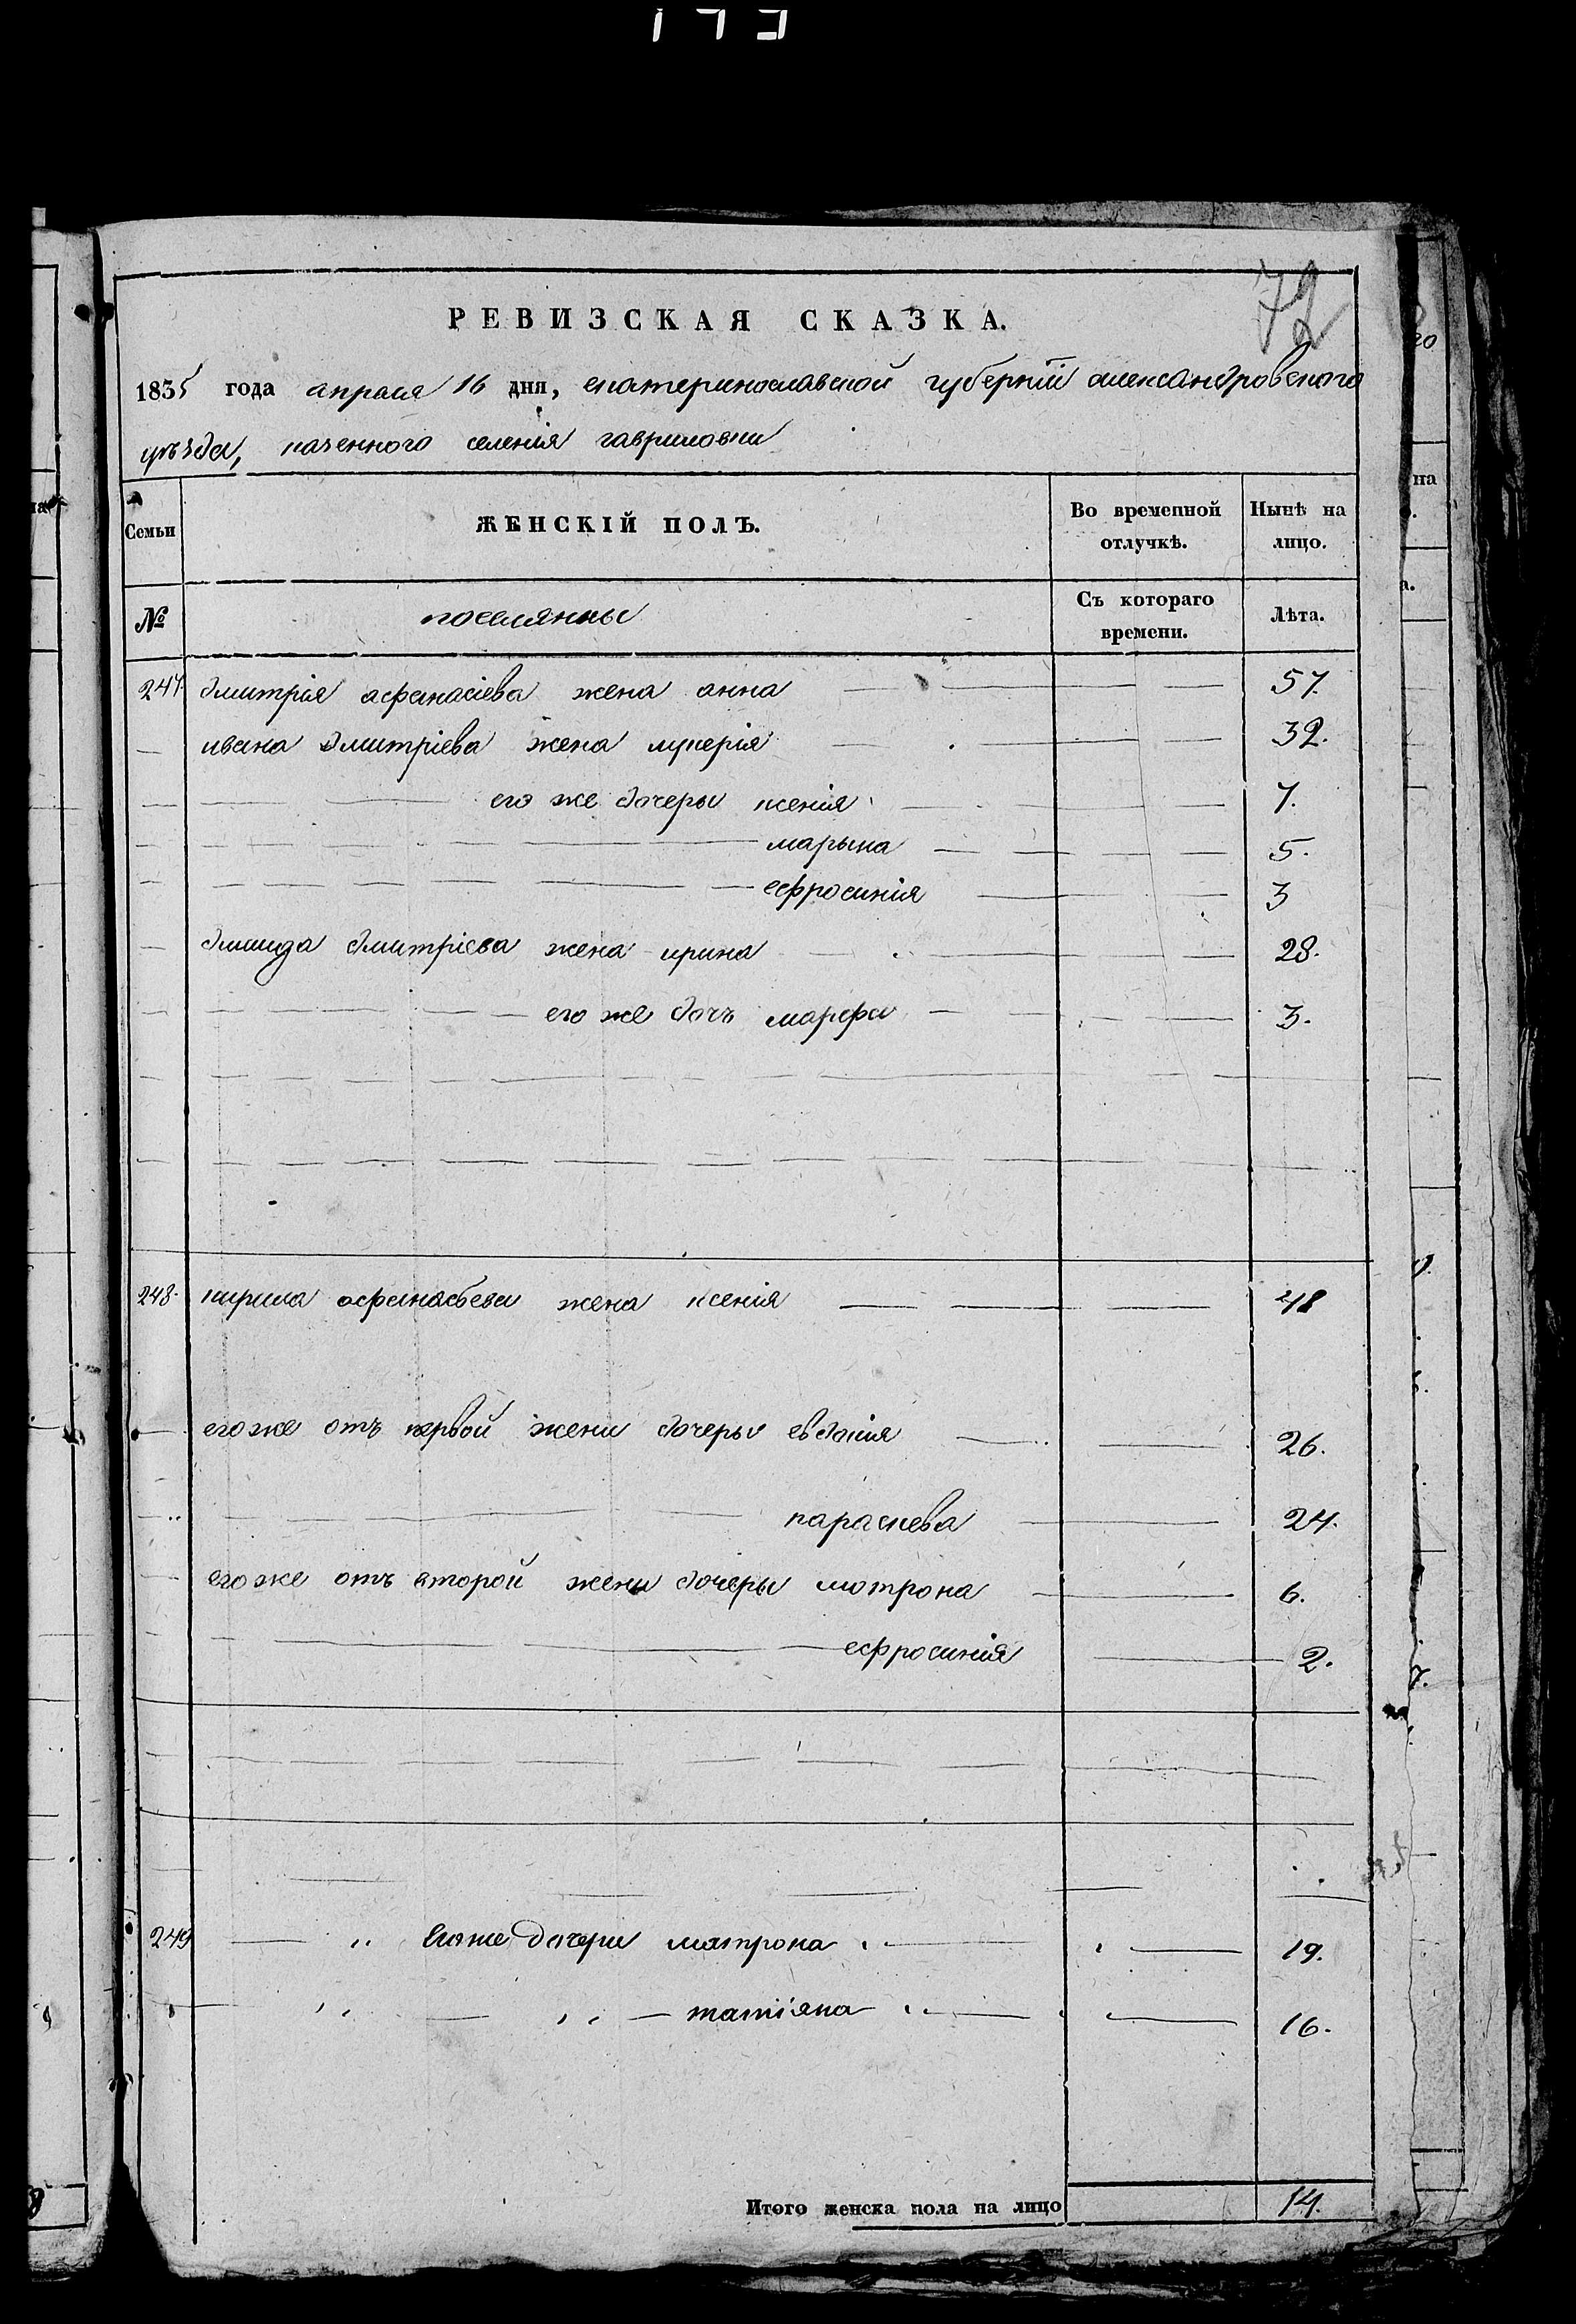 173
72
РЕВИЗСКАЯ СКАЗКА.
1835 года апреля 16 дня, екатеринославской губернїи александровского
уѣзда, казенного селенія гавриловки
Семьи ЖЕНСКІЙ ПОЛЪ. Во временной отлучкѣ. Нынѣ на лицо.
№ поселянны Съ котораго времени. Лѣта.
247 дмитрія афанасіева жена анна 57.
ивана дмитріева жена лукерія 32.
его же дочеры ксенія 7.
марына 5.
ефросинія 3
дмитріева жена ирина 28.
его же дочъ марфа 3.
248. кирила афанасьева жена ксенія 48
его же отъ первой жени дочеры евдокія 26.
параскева 24.
его же отъ второй жени дочеры мотрона 6.
ефросинія 2.
249 Егоже дочери матрона 19.
татіяна 16.
Итого женска пола на лицо 14.